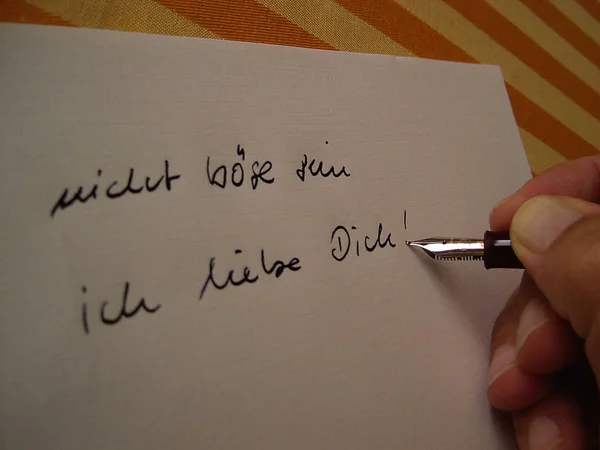 nicht böse sein
ich liebe Dich!